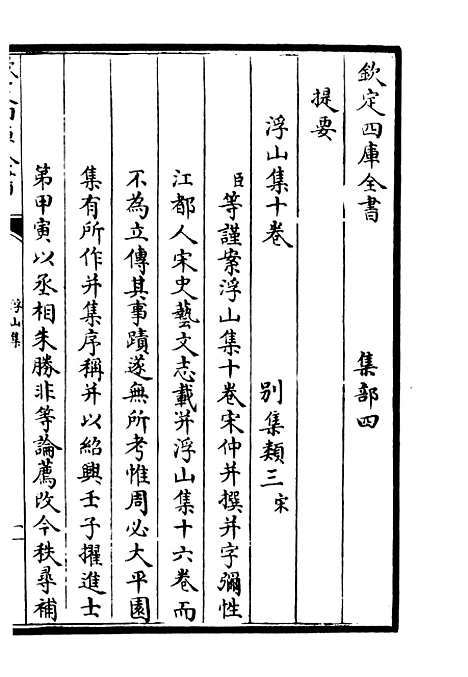 欽定四庫全書　集部四
提要
浮山集十卷　別集類三宋
臣等謹案浮山集十卷宋仲并撰并字彌性
江都人宋史藝文志載并浮山集十六卷而
不為立傳其事蹟遂無所考惟周必大平園
集有所作并集序稱并以紹興壬子擢進士
第甲寅以丞相朱勝非等論薦改令秩尋補
浮山集